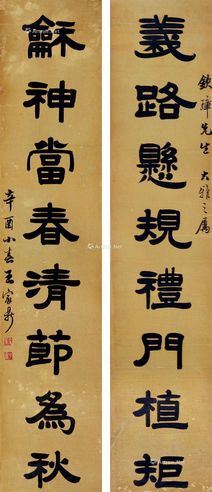 義路懸規禮門植矩
欽璋先生大雅之屬
龢神當春清節為秋
辛酉小春王家鼎